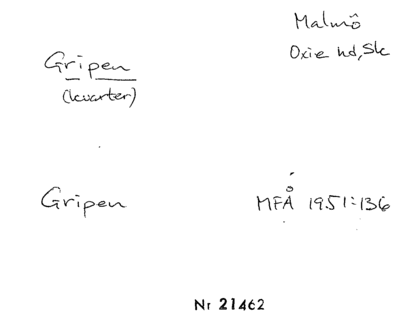 Malmö
Oxie hd, Sk
Gripen
(kvarter)
Gripen
MFÅ 1951:136
Nr 21462